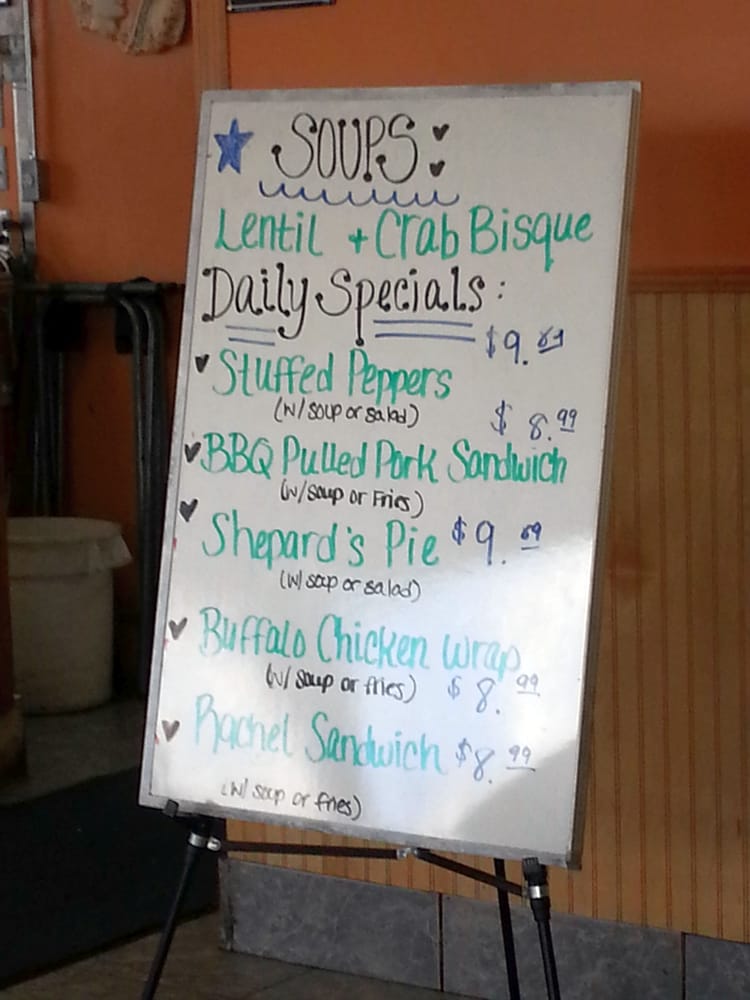 SOUPS:
Lentil + Crab Bisque
Daily Specials:
$9.
Stuffed Peppers
(w/ soup or salad) $8.99
BBQ Pulled Pork Sandwich
(w/ soup or Fries)
Shepard's Pie $9.69
(w/ soup or salad)
Buffalo Chicken wrap
(w/ soup or fries) $8.99
Rachel Sandwich $8.99
(w/ soup or fries)